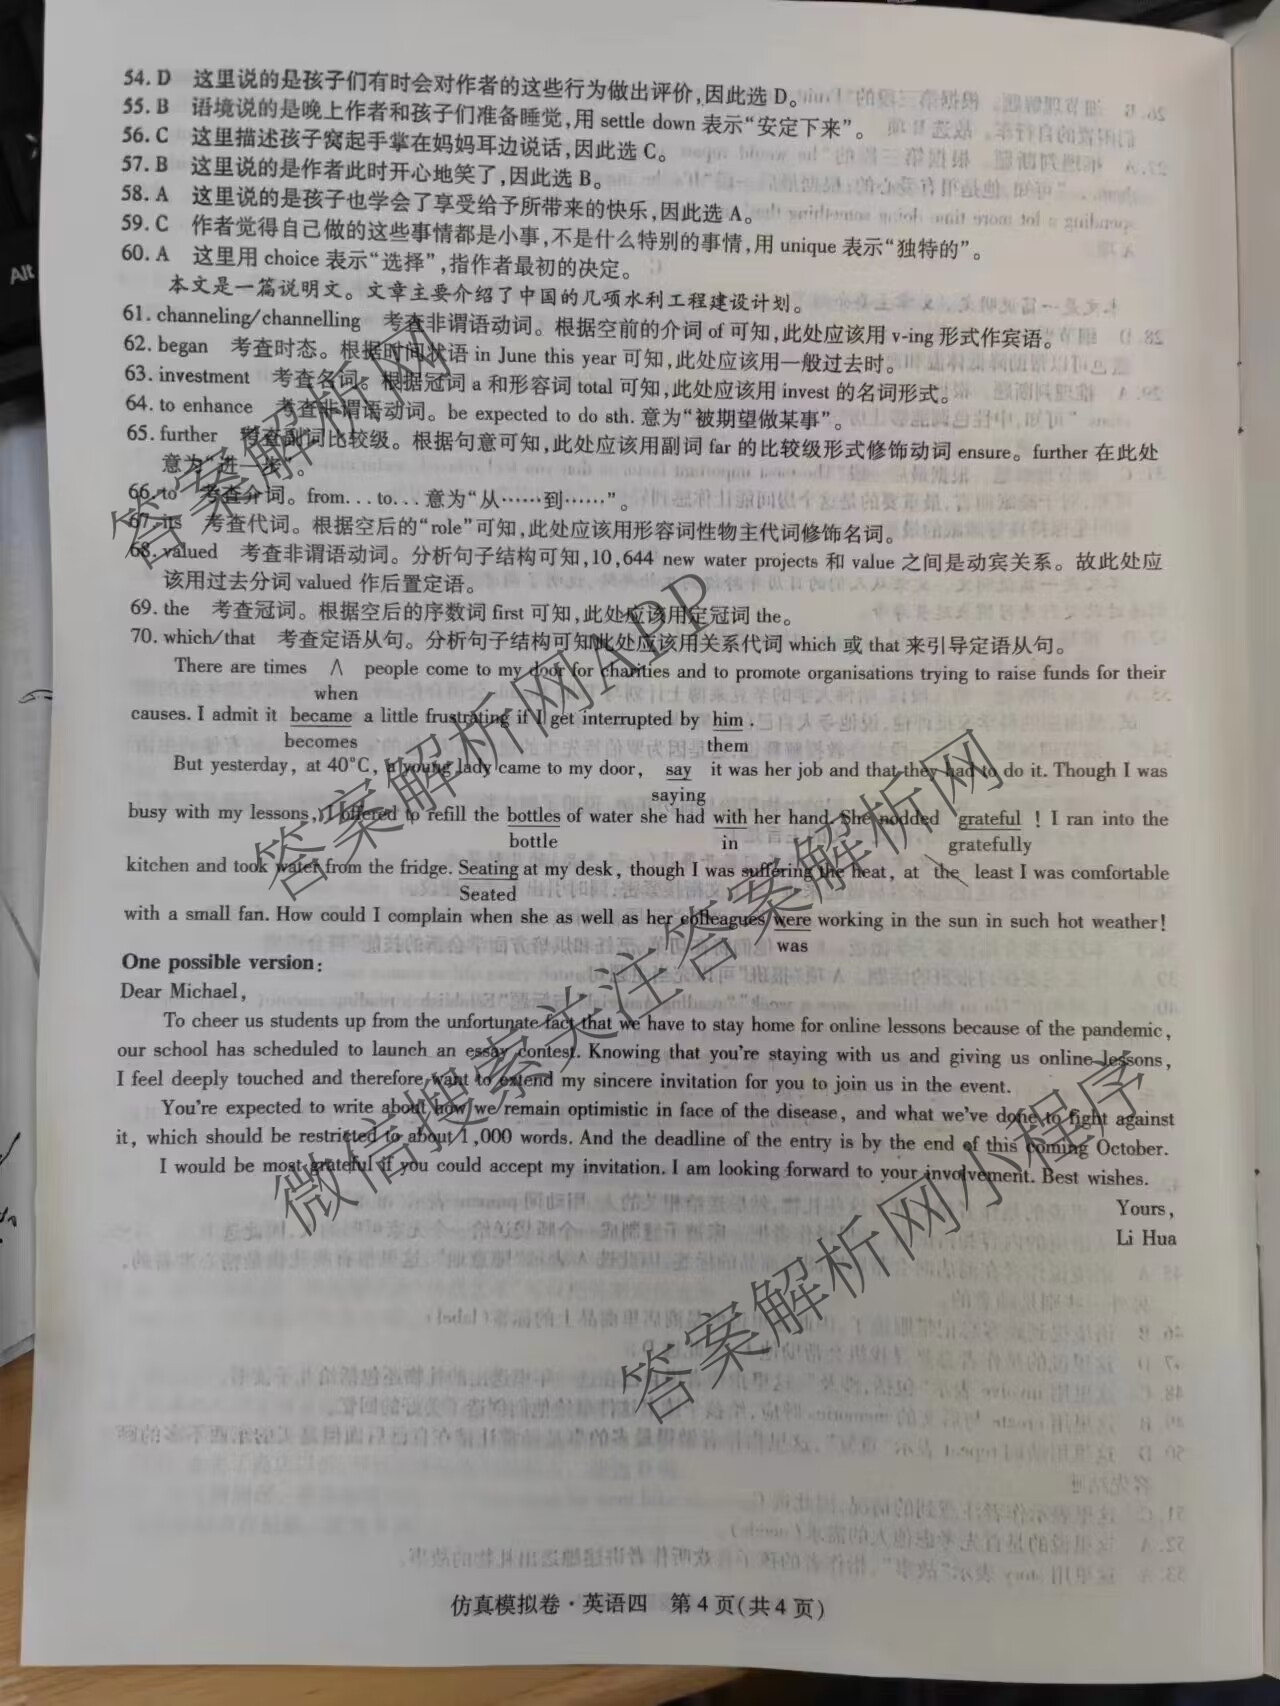 54. D 这里说的是孩子们有时会对作者的这些行为做出评价,因此选 D。
55. B 语境说的是晚上作者和孩子们准备睡觉,用 settle down 表示“安定下来”。
56. C 这里描述孩子窝起手掌在妈妈耳边说话,因此选 C。
57. B 这里说的是作者此时开心地笑了,因此选 B。
58. A 这里说的是孩子也学会了享受给予所带来的快乐,因此选 A。
59. C 作者觉得自己做的这些事情都是小事,不是什么特别的事情,用 unique 表示“独特的”。
60. A 这里用 choice 表示“选择”,指作者最初的决定。
本文是一篇说明文。文章主要介绍了中国的几项水利工程建设计划。
61. channeling/channelling 考查非谓语动词。根据空前的介词 of 可知,此处应该用 v-ing 形式作宾语。
62. began 考查时态。根据时间状语 in June this year 可知,此处应该用一般过去时。
63. investment 考查名词。根据冠词 a 和形容词 total 可知,此处应该用 invest 的名词形式。
64. to enhance 考查非谓语动词。be expected to do sth. 意为“被期望做某事”。
65. further 考查副词比较级。根据句意可知,此处应该用副词 far 的比较级形式修饰动词 ensure。further 在此处
意为“进一步”。
66. to 考查介词。from...to...意为“从……到……”。
67. its 考查代词。根据空后的“role”可知,此处应该用形容词性物主代词修饰名词。
68. valued 考查非谓语动词。分析句子结构可知,10,644 new water projects 和 value 之间是动宾关系。故此处应
该用过去分词 valued 作后置定语。
69. the 考查冠词。根据空后的序数词 first 可知,此处应该用定冠词 the。
70. which/that 考查定语从句。分析句子结构可知此处应该用关系代词 which 或 that 来引导定语从句。
There are times ∧ people come to my door for charities and to promote organisations trying to raise funds for their
when
causes. I admit it became a little frustrating if I get interrupted by him.
becomes them
But yesterday, at 40°C, a young lady came to my door, say it was her job and that they had to do it. Though I was
saying
busy with my lessons, I offered to refill the bottles of water she had with her hand. She nodded grateful! I ran into the
bottle in gratefully
kitchen and took water from the fridge. Seating at my desk, though I was suffering the heat, at the\ least I was comfortable
Seated
with a small fan. How could I complain when she as well as her colleagues were working in the sun in such hot weather!
was
One possible version:
Dear Michael,
To cheer us students up from the unfortunate fact that we have to stay home for online lessons because of the pandemic,
our school has scheduled to launch an essay contest. Knowing that you're staying with us and giving us online lessons,
I feel deeply touched and therefore want to extend my sincere invitation for you to join us in the event.
You're expected to write about how we remain optimistic in face of the disease, and what we've done to fight against
it, which should be restricted to about 1,000 words. And the deadline of the entry is by the end of this coming October.
I would be most grateful if you could accept my invitation. I am looking forward to your involvement. Best wishes.
Yours,
Li Hua
仿真模拟卷·英语四 第 4 页(共 4 页)
答案解析网
答案解析网APP
微信搜索关注答案解析网
答案解析网小程序
Alt